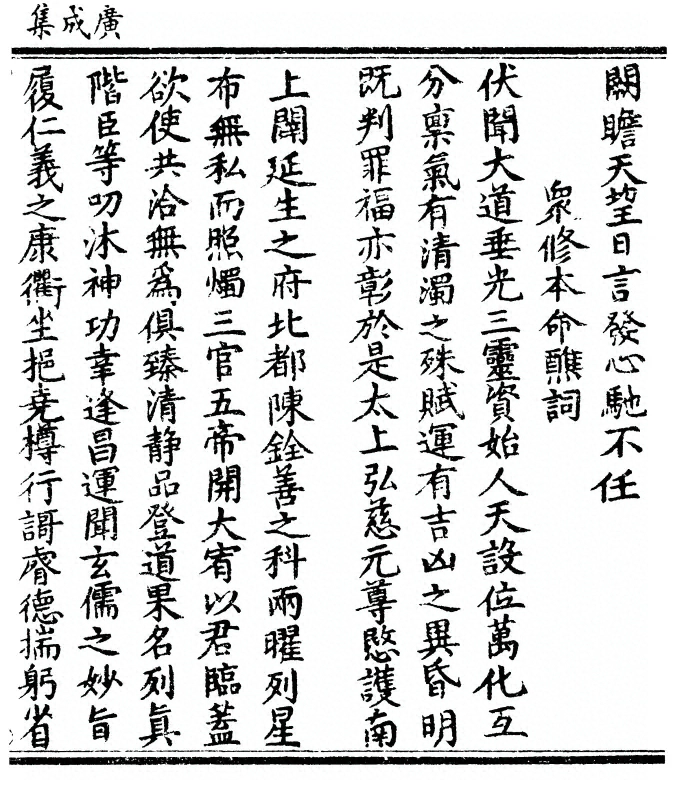 廣成集
闕瞻天望日言發心馳不任
衆修本命醮詞
伏聞大道垂光三靈資始人天設位萬化互
分稟氣有清濁之殊賦運有吉凶之異昏明
既判罪福亦彰於是太上弘慈元尊愍護南
上闢延生之府北都陳銓善之科兩曜列星
布無私而照燭三官五帝開大宥以君臨蓋
欲使共洽無爲俱臻清静品登道果名列眞
階臣等叨沐神功幸逢昌運聞玄儒之妙旨
履仁義之康衢坐挹堯樽行謌睿德揣躬省